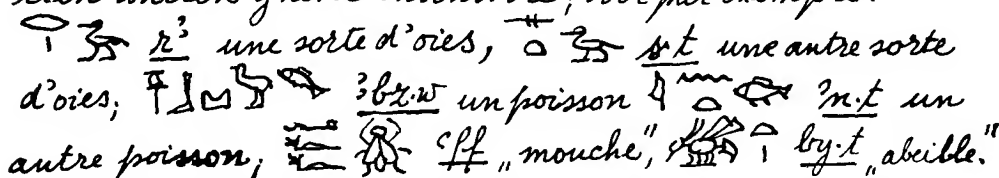 par exemple:
rʾ une sorte d'oies, s.t une autre sorte
d'oies; ʾbz.w un poisson ʾn.t un
autre poisson, ʿff „mouche", by.t „abeible."